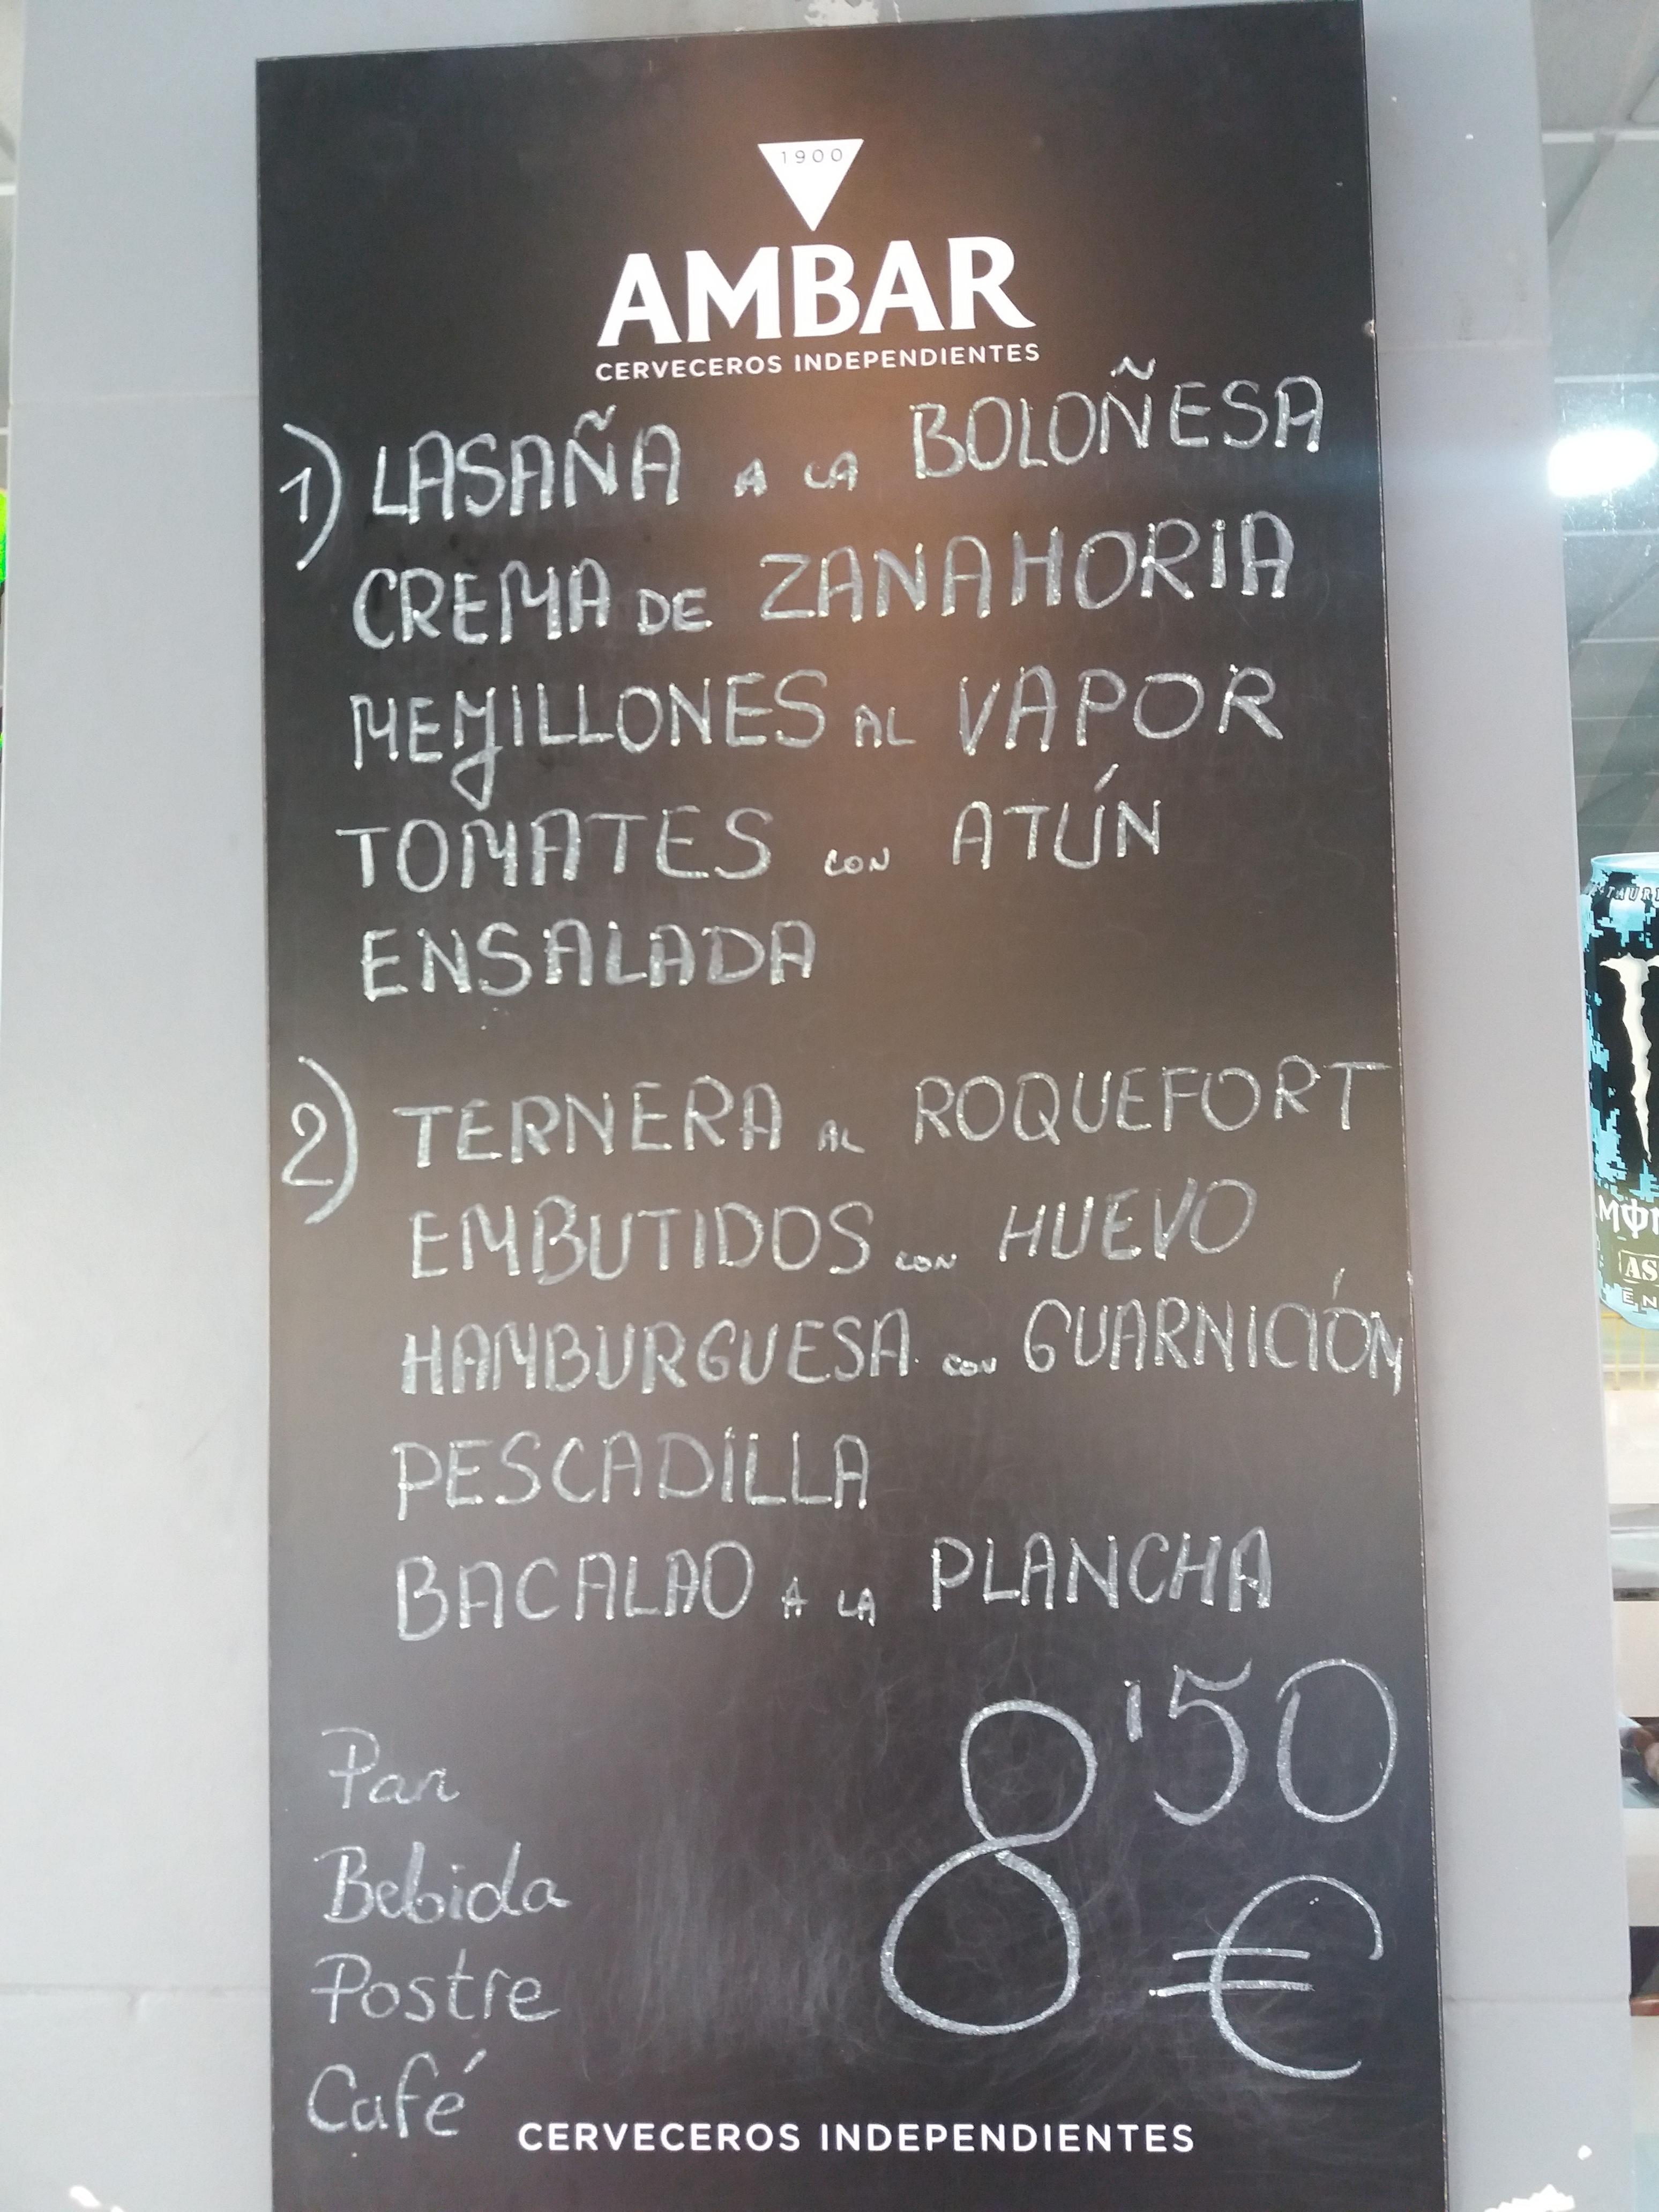 1900
AMBAR
CERVECEROS INDEPENDIENTES
1) LASAÑA A LA BOLOÑESA
CREMA DE ZANAHORIA
MEJILLONES AL VAPOR
TOMATES CON ATÚN
ENSALADA
2) TERNERA AL ROQUEFORT
EMBUTIDOS CON HUEVO
HAMBURGUESA CON GUARNICIÓN
PESCADILLA
BACALAO A LA PLANCHA
8'50
€
Pan
Bebida
Postre
Café
CERVECEROS INDEPENDIENTES